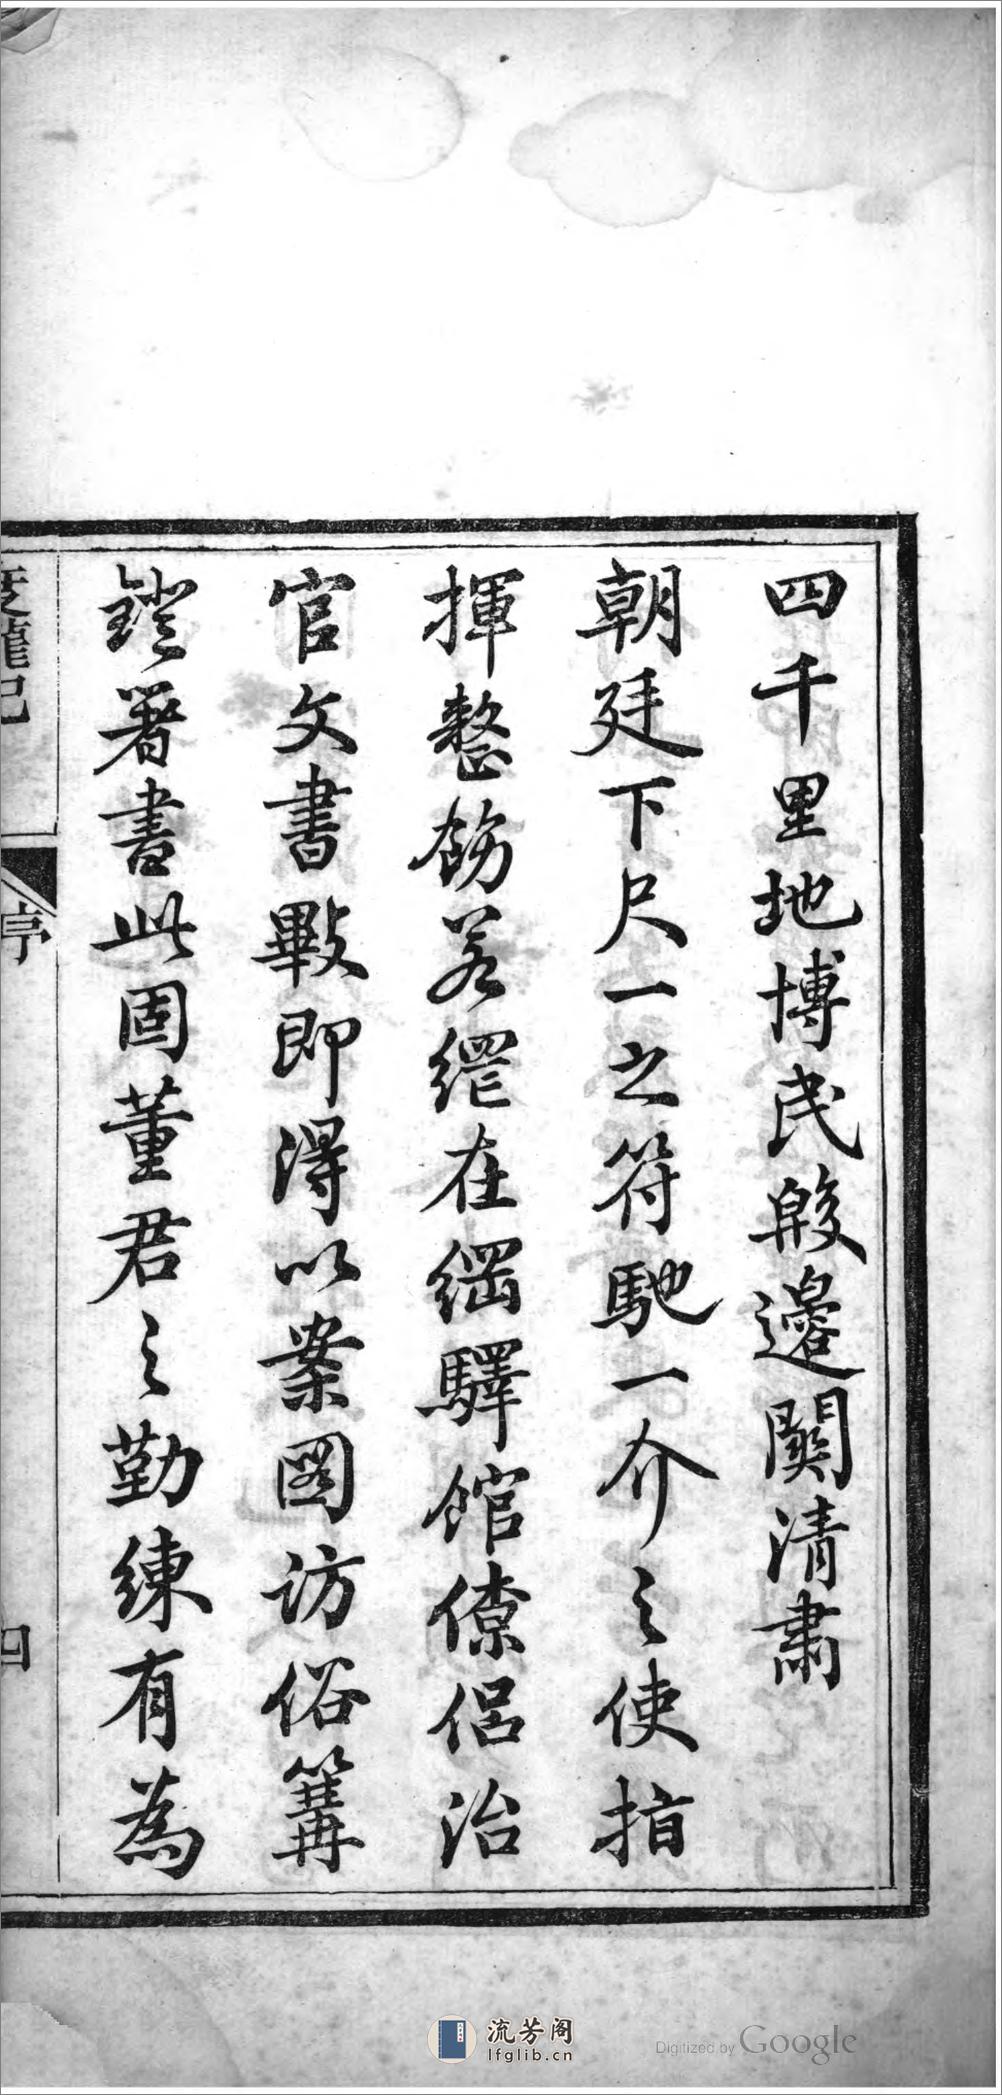 四千里地博民殷邊關清肅
朝廷下尺一之符馳一介之使指
揮整飭若繩在綱驛館僚侶治
官文書數即得以案圖訪俗篝
鐙著書此固董君之勤練有為
度隴記
序
四
流芳阁
lfglib.cn
Digitized by Google